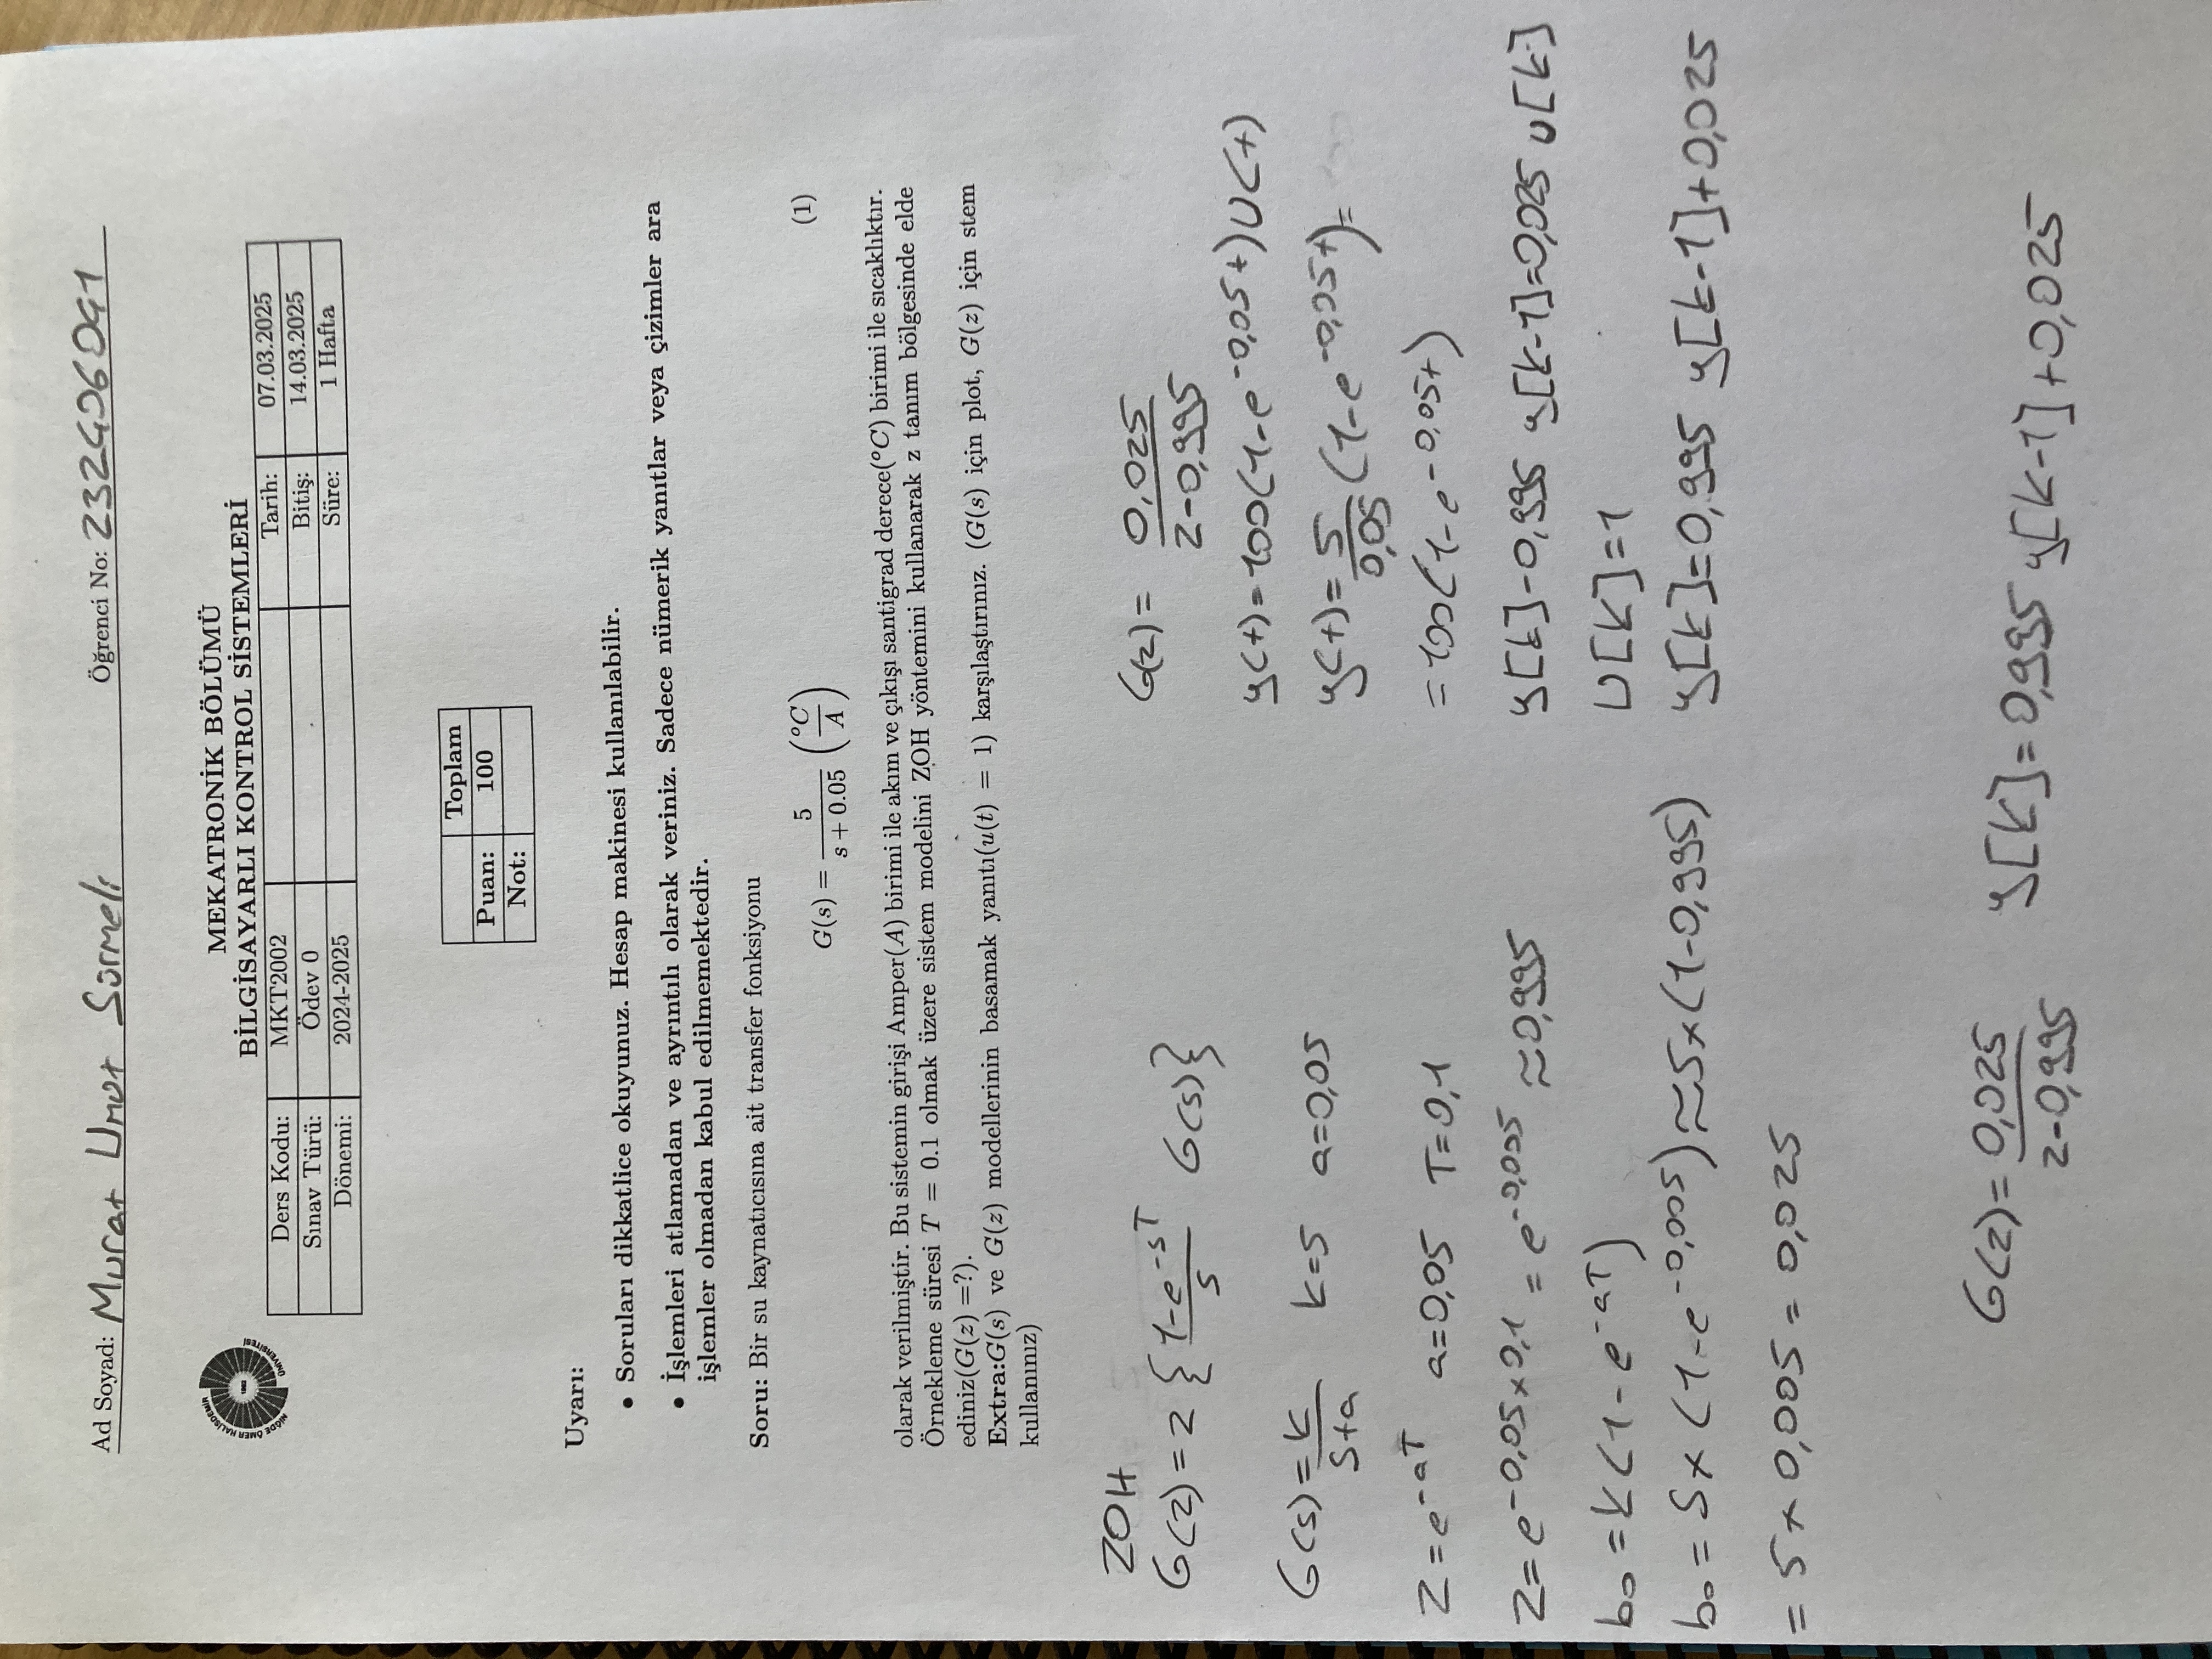 Ad Soyad: Murat Umut Sürmeli Öğrenci No: 232406041
NİĞDE ÖMER HALİSDEMİR ÜNİVERSİTESİ
1992
MEKATRONİK BÖLÜMÜ
BİLGİSAYARLI KONTROL SİSTEMLERİ
Ders Kodu: MKT2002 Tarih: 07.03.2025
Sınav Türü: Ödev 0 Bitiş: 14.03.2025
Dönemi: 2024-2025 Süre: 1 Hafta
Toplam
Puan: 100
Not:
Uyarı:
• Soruları dikkatlice okuyunuz. Hesap makinesi kullanılabilir.
• İşlemleri atlamadan ve ayrıntılı olarak veriniz. Sadece nümerik yanıtlar veya çizimler ara
işlemler olmadan kabul edilmemektedir.
Soru: Bir su kaynatıcısına ait transfer fonksiyonu
G(s) = 5 / (s + 0.05) (°C / A) (1)
olarak verilmiştir. Bu sistemin girişi Amper(A) birimi ile akım ve çıkışı santigrad derece(°C) birimi ile sıcaklıktır.
Örnekleme süresi T = 0.1 olmak üzere sistem modelini ZOH yöntemini kullanarak z tanım bölgesinde elde
ediniz(G(z) =?).
Extra:G(s) ve G(z) modellerinin basamak yanıtı(u(t) = 1) karşılaştırınız. (G(s) için plot, G(z) için stem
kullanınız)
ZOH
G(z) = z { (1-e^-sT) / s G(s) }
G(s) = k / (s+a) k=5 a=0,05
z = e^-aT a=0,05 T=0,1
z = e^-0,05×0,1 = e^-0,005 ≈ 0,995
b0 = k(1-e^-aT)
b0 = 5 × (1-e^-0,005) ≈ 5×(1-0,995)
= 5 × 0,005 = 0,025
G(z) = 0,025 / (z-0,995)
y(t) = 100(1-e^-0,05t)u(t)
y(t) = 5 / 0,05 (1-e^-0,05t) =
= 100(1-e^-0,05t)
y[k]-0,995 y[k-1]=0,025 u[k]
U[k]=1
y[k]=0,995 y[k-1]+0,025
G(z) = 0,025 / (z-0,995) y[k]=0,995 y[k-1]+0,025